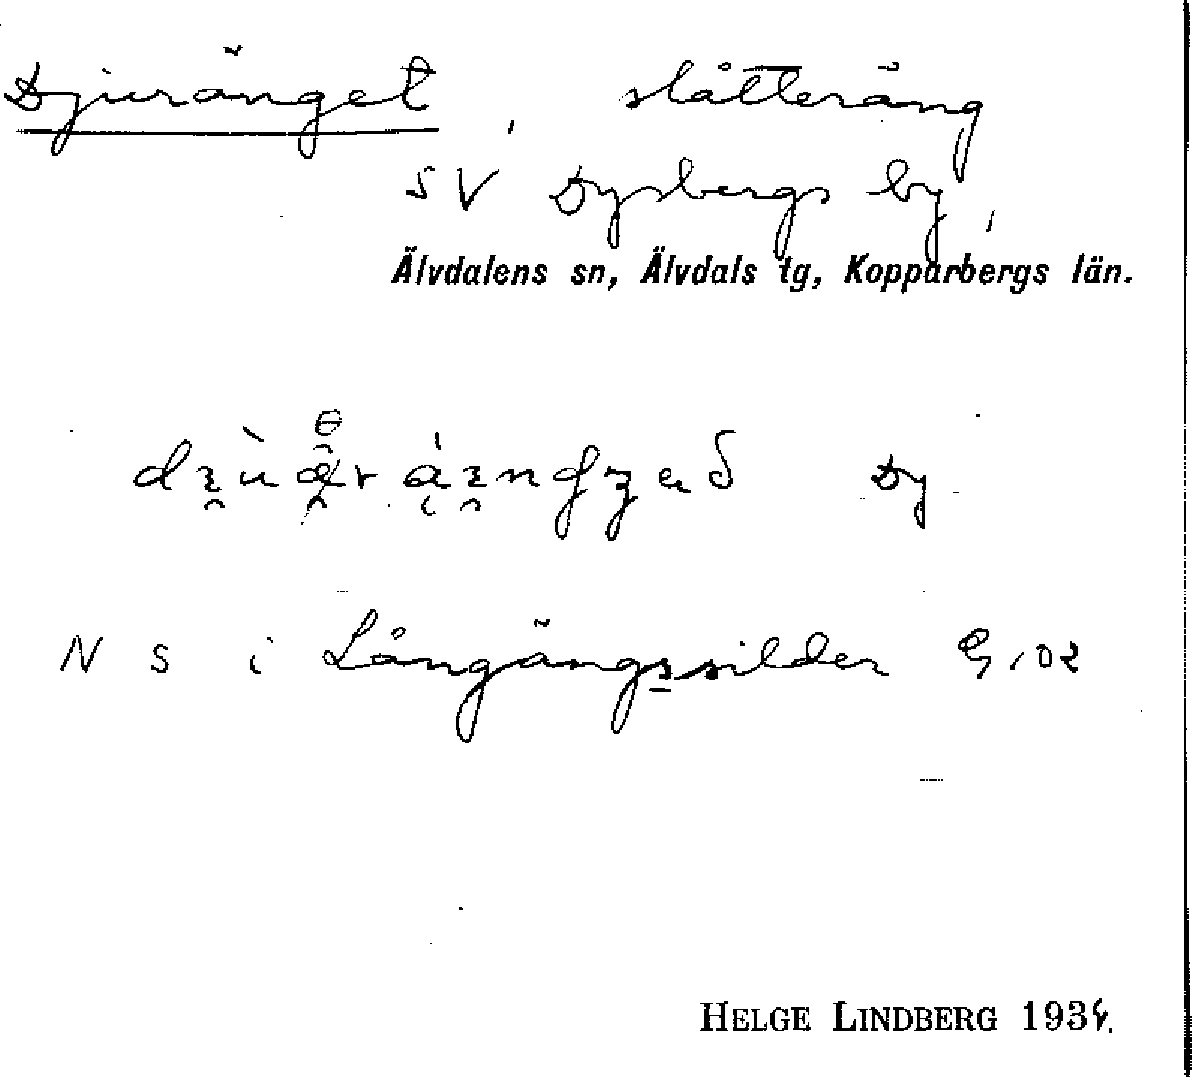 Djuränget, slåtteräng
SV Dysbergs by,
Älvdalens sn, Älvdals tg, Kopparbergs län.
Dy
N s i Långängssilder
HELGE LINDBERG 193